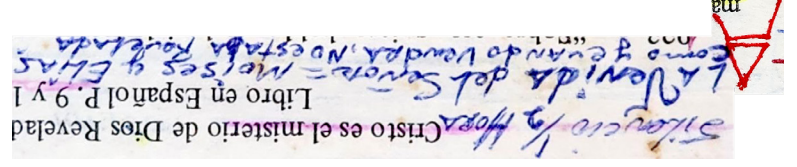 Silencio ½ Hora Cristo es el misterio de Dios Revelad
Libro en Español P. 9 y 1
La Venida del Señor = Moises y Elias
Como y Cuando Vendra, No estaba Revelada
ma